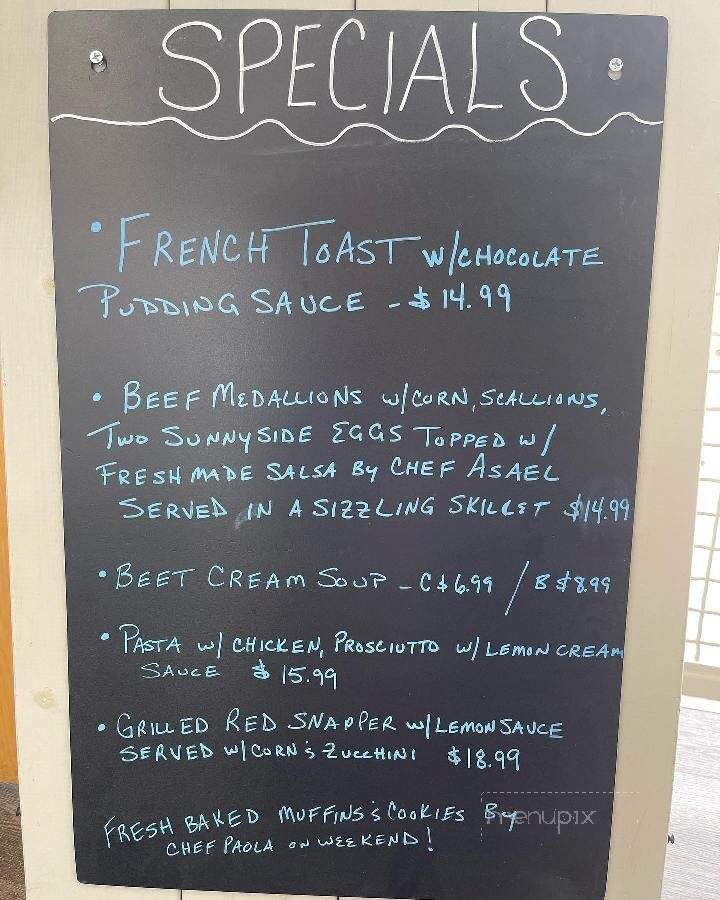 SPECIALS
• FRENCH TOAST W/CHOCOLATE
PUDDING SAUCE - $14.99
• BEEF MEDALLIONS W/CORN, SCALLIONS,
TWO SUNNYSIDE EGGS TOPPED W/
FRESH MADE SALSA BY CHEF ASAEL
SERVED IN A SIZZLING SKILLET $14.99
• BEET CREAM SOUP - C$6.99 / B $8.99
• PASTA W/ CHICKEN, PROSCIUTTO W/ LEMON CREAM
SAUCE $15.99
• GRILLED RED SNAPPER W/LEMON SAUCE
SERVED W/CORN & ZUCCHINI $18.99
FRESH BAKED MUFFINS & COOKIES BY
CHEF PAOLA ON WEEKEND!
menupix